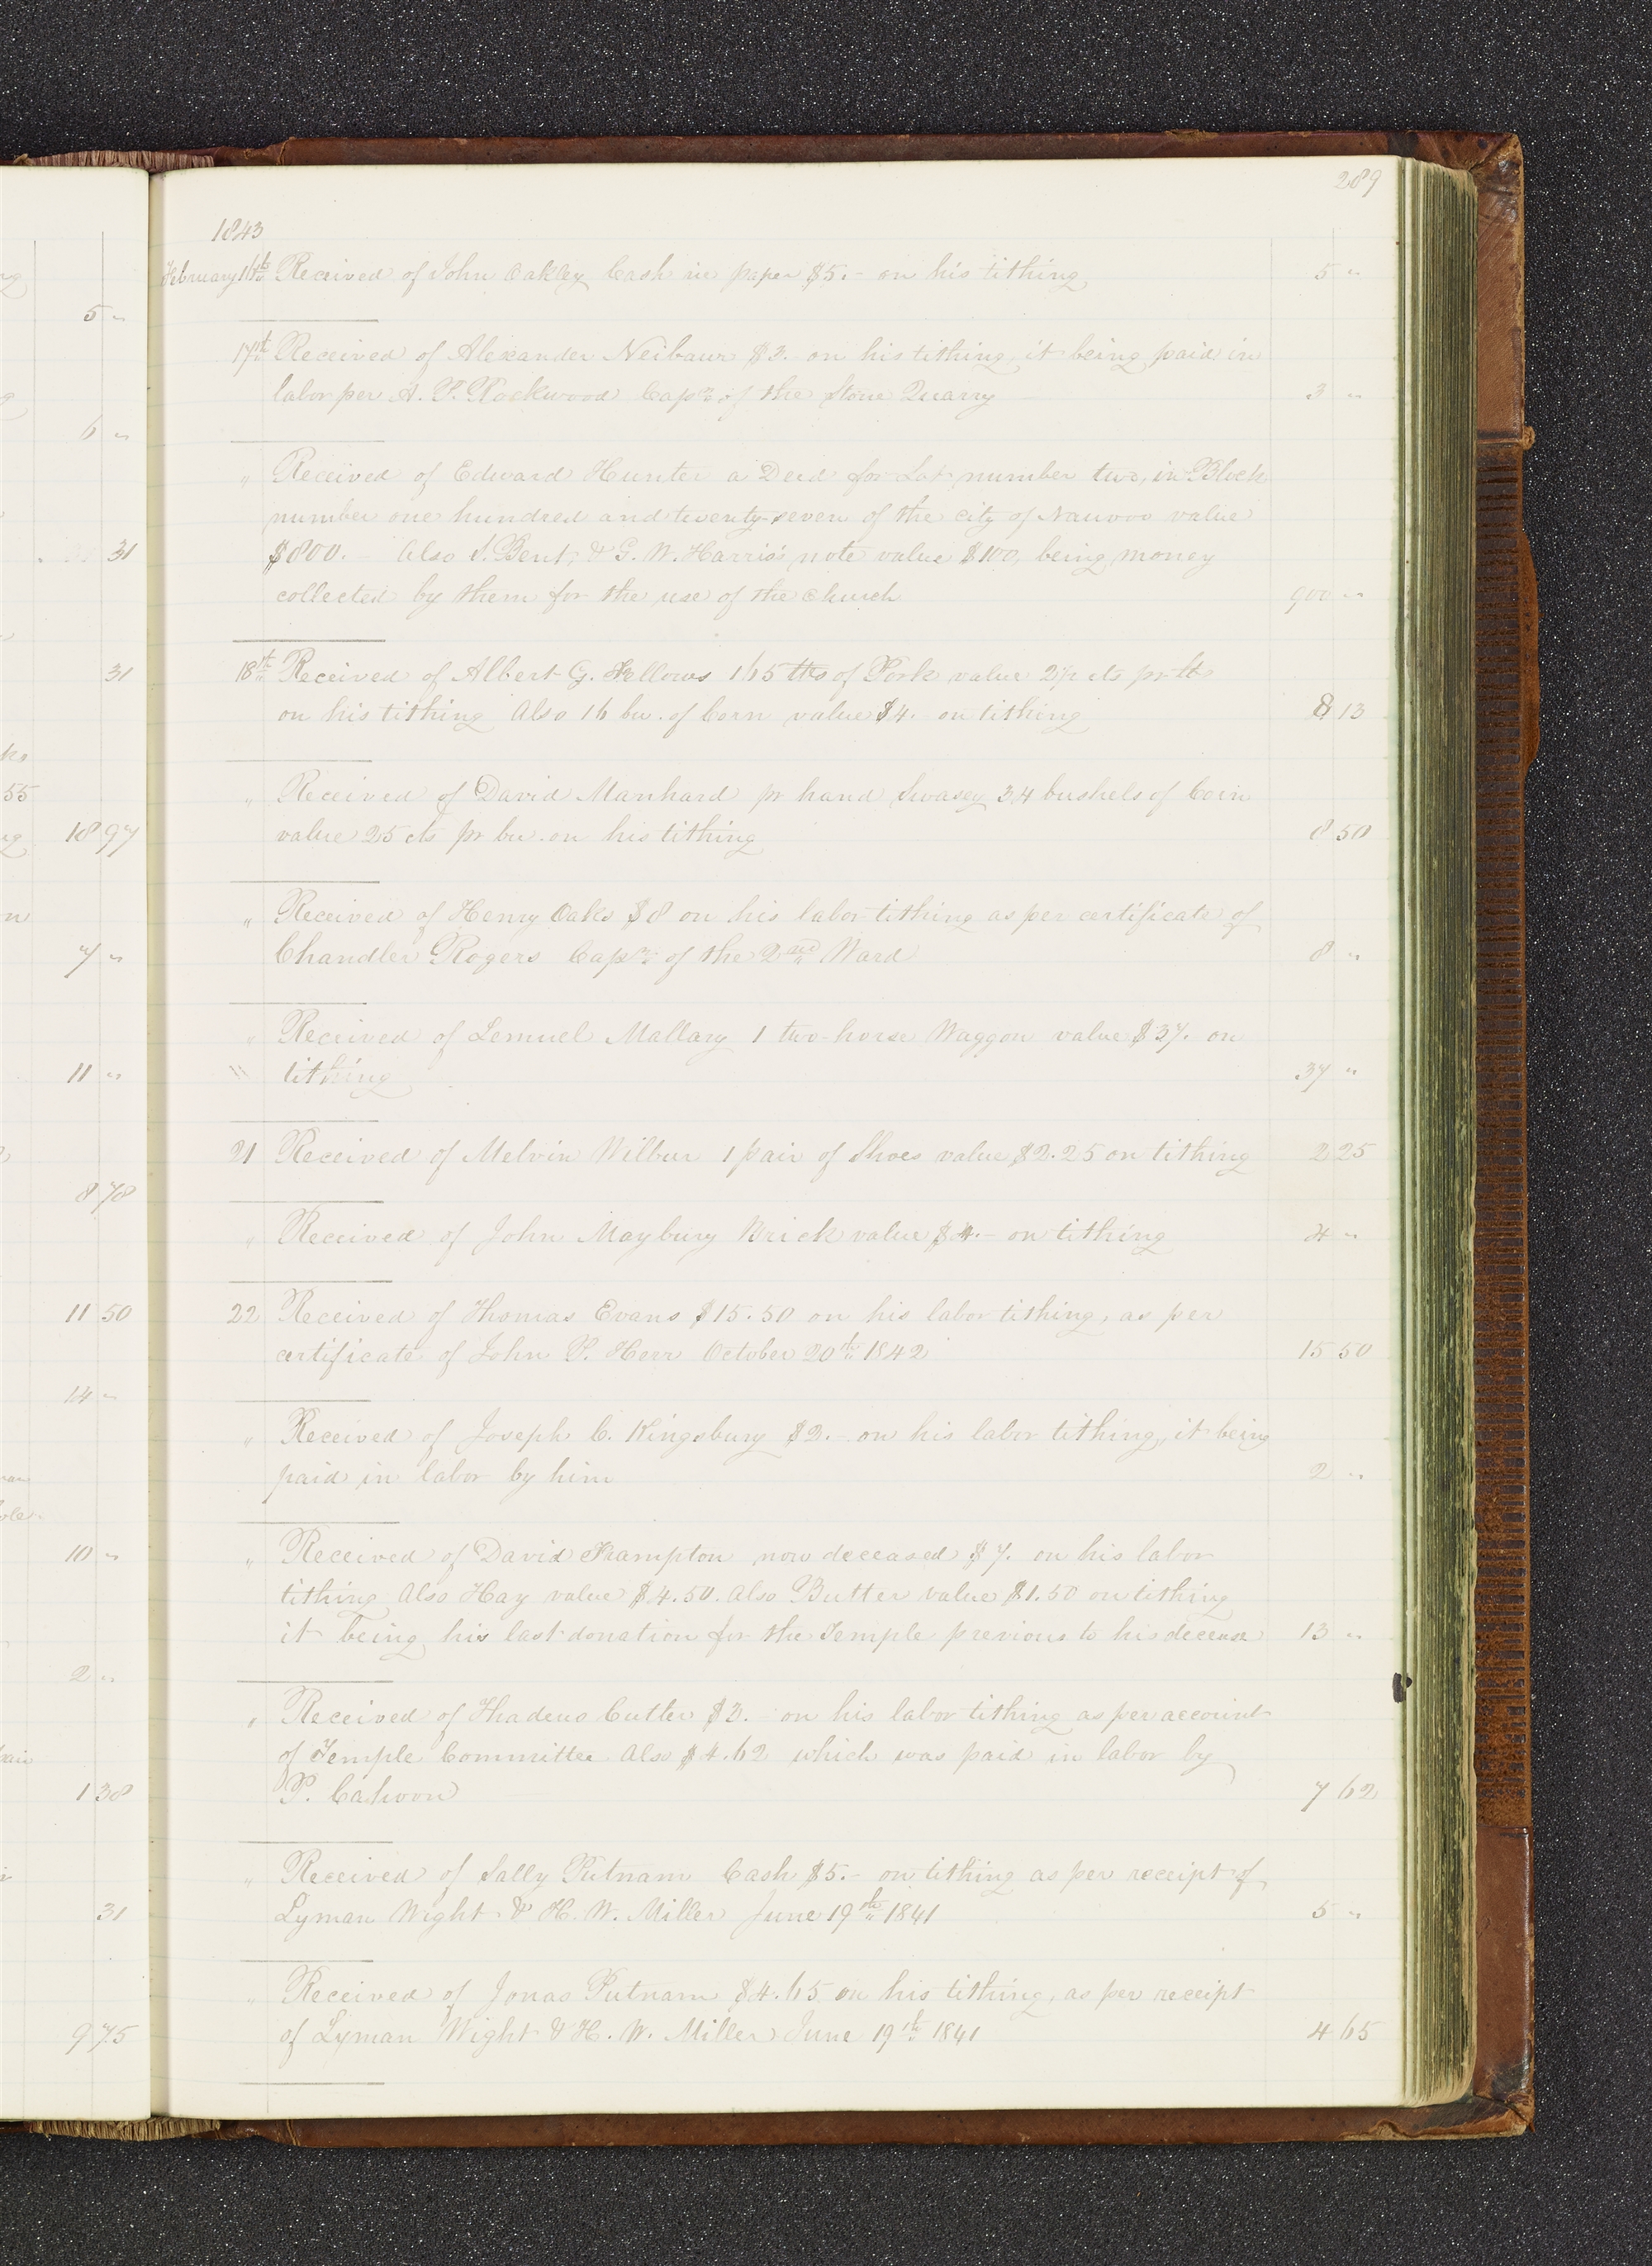 289
1843
February 16th Received of John Oakley Cash in paper $5.- on his tithing 5 "
17th Received of Alexander Neibaur $3.- on his tithing, it being paid in
labor per A. P. Rockwood Capn. of the Stone Quarry 3 "
" Received of Edward Hunter a Deed for Lot number two, in Block
number one hundred and twenty-seven of the city of Nauvoo value
$800.- Also S. Bent, & G. W. Harris's note value $100, being money
collected by them for the use of the church 900 "
18th Received of Albert G. Fellows 165 lbs of Pork value 2½ cts pr lb
on his tithing Also 16 bu. of Corn value $4. on tithing 8 13
" Received of David Manhard pr hand Swasey 34 bushels of Corn
value 25 cts pr bu. on his tithing 8 50
" Received of Henry Oaks $8 on his labor tithing as per certificate of
Chandler Rogers Capn. of the 2nd Ward 8 "
" Received of Lemuel Mallary 1 two-horse Waggon value $37. on
" tithing 37 "
21 Received of Melvin Wilbur 1 pair of Shoes value $2.25 on tithing 2 25
" Received of John Maybury Brick value $4.- on tithing 4 "
22 Received of Thomas Evans $15.50 on his labor tithing, as per
certificate of John P. Herr October 20th 1842 15 50
" Received of Joseph C. Kingsbury $2.- on his labor tithing, it being
paid in labor by him 2 "
" Received of David Frampton now deceased $7. on his labor
tithing Also Hay value $4.50. Also Butter value $1.50 on tithing
it being his last donation for the Temple previous to his decease 13 "
" Received of Thadeus Cutler $3.- on his labor tithing as per account
of Temple Committee Also $4.62 which was paid in labor by
P. Cahoon 7 62
" Received of Sally Putnam Cash $5.- on tithing as per receipt of
Lyman Wight & H. W. Miller June 19th 1841 5 "
" Received of Jonas Putnam $4.65 on his tithing, as per receipt
of Lyman Wight & H. W. Miller June 19th 1841 4 65
5 "
6 "
31
31
55
18 97
7 "
11 "
8 78
11 50
14 "
10 "
2 "
1 38
31
9 75